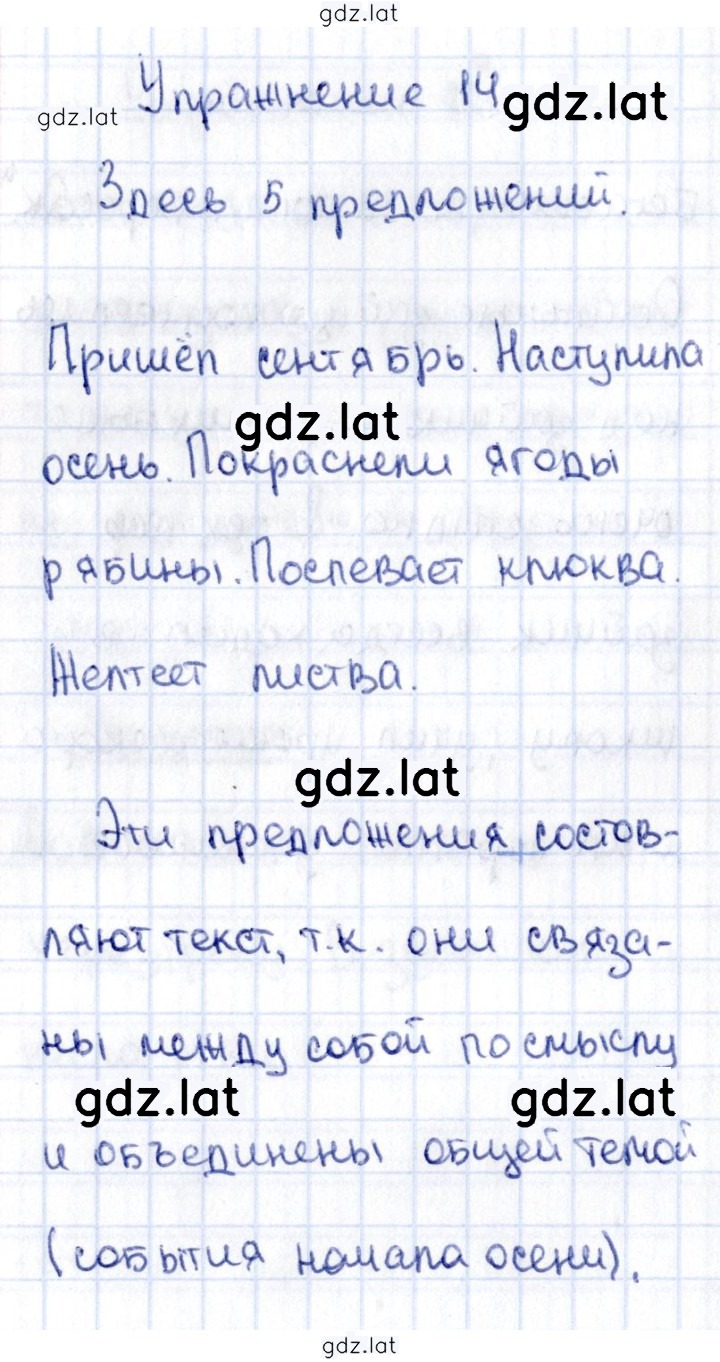 gdz.lat
Упражнение 14
gdz.lat
gdz.lat
Здесь 5 предложений.
Пришёл сентябрь. Наступила
gdz.lat
осень. Покраснели ягоды
рябины. Поспевает клюква.
Желтеет листва.
gdz.lat
Эти предложения состов-
ляют текст, т.к. они связа-
ны между собой по смыслу
gdz.lat
gdz.lat
и объединены общей темой
(события начала осени).
gdz.lat